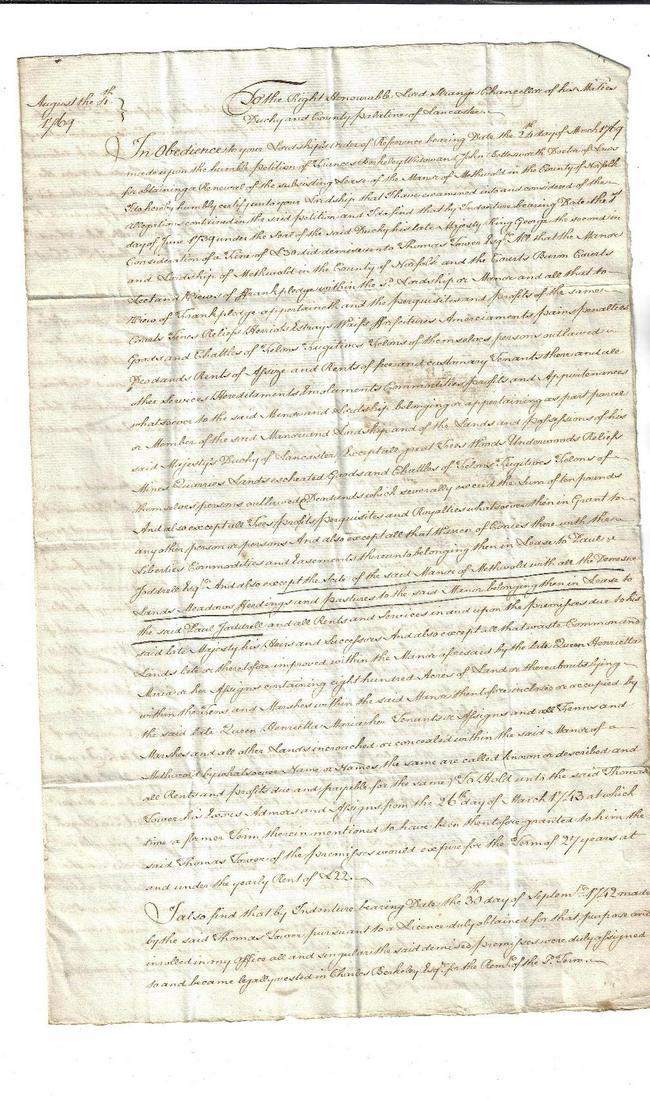 August the 4th
1769
To the Right Honourable Lord Strange Chancellor of his Majties
Duchy and County palatine of Lancaster
In Obedience to your Lordship's order of Reference bearing Date the 24th day of March 1769
made upon the humble petition of Frances Berkeley Widow and John Cottesworth Doctor of Laws
for Obtaining a Renewal of the subsisting Lease of the Manor of Methwold in the County of Norfolk
I do hereby humbly certify unto your Lordship that I have examined into and considered of the
Allegations contained in the said petition and I do find that by Indenture bearing Date the
day of June 1734 under the Seal of the said Duchy his late Majesty King George the second in
Consideration of a Fine of £30 did demise unto Thomas Tower Esqr. All that the Manor
and Lordship of Methwold in the County of Norfolk and the Courts Baron Courts
Leet and Views of ffrankpledge within the sd Lordship or Manor and all that to
View of Frankpledge appertaineth and the perquisites and profits of the same
Courts Fines Reliefs Herriots Estrays Waifs fforfeitures Amerciaments pains penalties
Goods and Chattles of Felons Fugitives Felons of themselves persons outlawed
Deodands Rents of Assize and Rents of free and customary Tenants there and all
other Services Hereditaments Emoluments Commodities profits and Appurtenances
whatsoever to the said Manor and Lordship belonging or appertaining as part parcel
or Member of the said Manor and Lordship and of the Lands and possessions of his
said Majesty's Duchy of Lancaster Except all great Trees Woods Underwoods Reliefs
Mines Quarries Lands escheated Goods and Chattles of Felons Fugitives Felons of
themselves persons outlawed & Deodands which severally exceed the Sum of ten pounds
And also except all Fees profits perquisites and Royalties whatsoever then in Grant to
any other person or persons And also except all that Warren of Conies there with the
Liberties Commodities and Easements thereunto belonging then in Lease to Paul
Joddrell Esqr. And also except the Scite of the said Manor of Methwold with all the Demesne
Lands Meadows Feedings and pastures to the said Manor belonging then in Lease to
the said Paul Joddrell and all Rents and Services in and upon the premisses due to his
said late Majesty his Heirs and Successors And also except all that waste Common and
Lands late or theretofore improved within the Manor aforesaid by the late Queen Henrietta
Maria or her Assigns containing eight hundred Acres of Land or thereabouts lying
within the Fens and Marshes within the said Manor theretofore inclosed or occupied by
the said late Queen Henrietta Maria her Tenants or Assigns and all Fenns and
Marshes and all other Lands incroached or concealed within the said Manor of
Methwold by whatsoever Name or Names the same are called known or described and
all Rents and profits due and payable for the same To Hold unto the said Thomas
Tower his Exors Admors and Assigns from the 26th day of March 1743 at which
time a former Term therein mentioned to have been theretofore granted to him the
said Thomas Tower of the premisses would expire for the Term of 27 years at
and under the yearly Rent of £22.
I also find that by Indenture bearing Date the 30th day of Septemr. 1742 made
by the said Thomas Tower pursuant to a Licence duly obtained for that purpose and
inrolled in my Office all and singular the said demised premisses were duly assigned
to and became legally vested in Charles Berkeley Esqr. for the Remr. of the sd. Term.